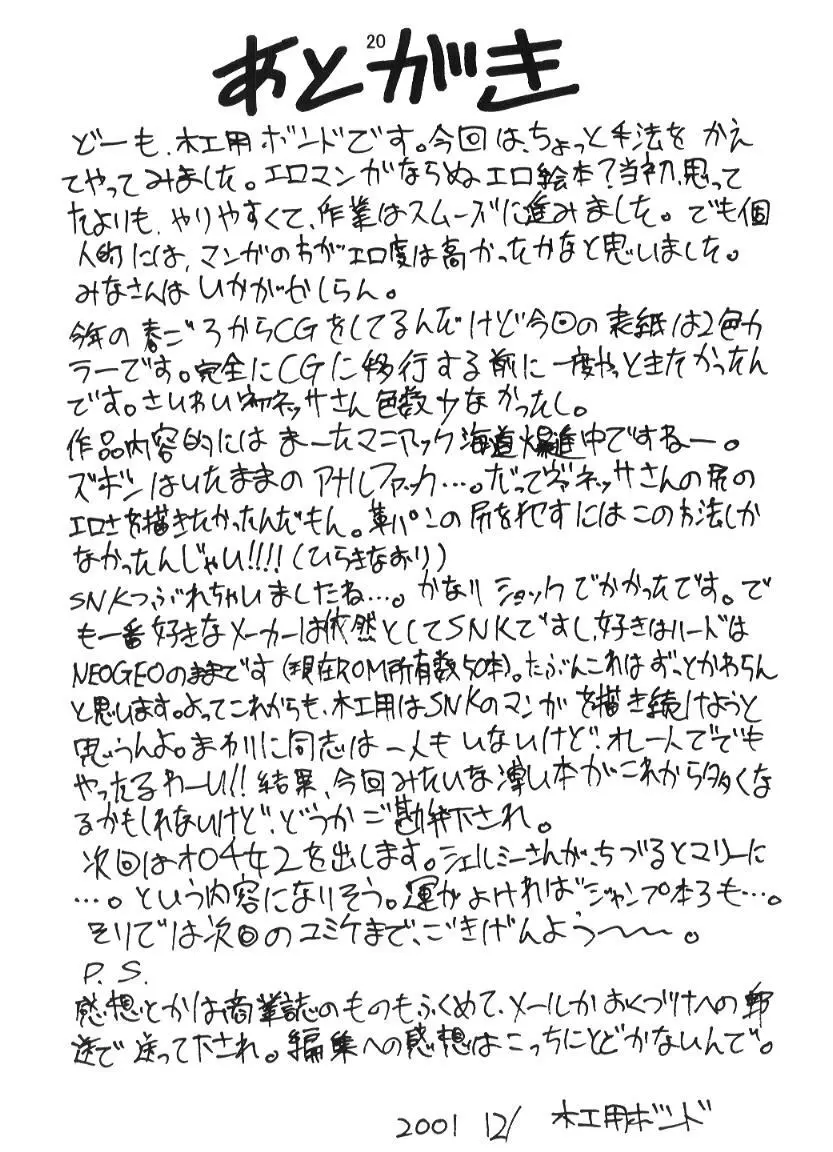 20
あとがき
どーも、木工用ボンドです。今回は、ちょっと手法をかえ
てやってみました。エロマンガならぬエロ絵本?当初、思って
たよりも、やりやすくて、作業はスムーズに進みました。でも個
人的には、マンガの方がエロ度は高かったかなと思いました。
みなさんはいかがかしらん。
今年の春ごろからCGをしてるんだけど今回の表紙は2色カ
ラーです。完全にCGに移行する前に一度やっときたかったん
です。さいわいヴァネッサさん色数少なかったし。
作品内容的にはまーたマニアック海道爆進中ですねー。
ズボンはいたままのアナルファック…。だってヴァネッサさんの尻の
エロさを描きたかったんだもん。革パンの尻を犯すにはこの方法しか
なかったんじゃい!!!!(ひらきなおり)
SNKつぶれちゃいましたね…。かなりショックでかかったです。で
も一番好きなメーカーは依然としてSNKですし、好きはハードは
NEOGEOのままです(現在ROM所有数50本)。たぶんこれはずっとかわらん
と思います。よってこれからも、木工用はSNKのマンガを描き続けようと
思うんよ。まわりに同志は一人もいないけど、オレ一人ででも
やったるわーい!!結果、今回みたいな薄い本がこれから多くな
るかもしれないけど、どうかご勘弁下され。
次回はオロチ女2を出します。シェルミーさんが、ちづるとマリーに
…。という内容になりそう。運がよければジャンプ本3も…。
そりでは次回のコミケまで、ごきげんよう〜〜。
P.S.
感想とかは商業誌のものもふくめて、メールかおくづけへの郵
送で送って下され。編集への感想はこっちにとどかないんで。
2001 12/ 木工用ボンド